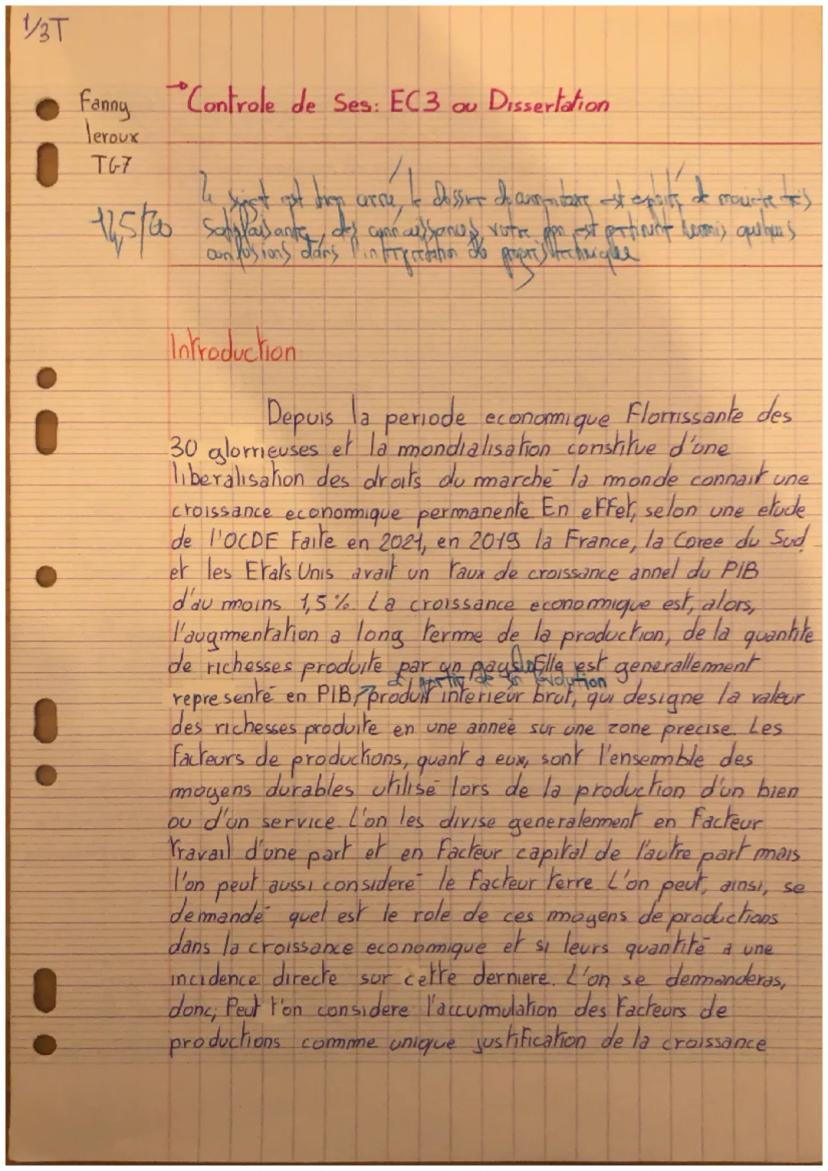 1/3T
Fanny
leroux
TG7
→Controle de Ses: EC3 ou Dissertation
12,5/20
Le sujet est bien cerné, le dossier documentaire est exploité de manière très
satisfaisante, des connaissances votre plan est pertinent hormis quelques
confusions dans l'interprétation du progrès technique
Introduction
Depuis la periode economique Florrissante des
30 glorrieuses et la mondialisation constitue d'une
liberalisation des droits du marché la monde connait une
croissance economique permanente En effet, selon une etude
de l'OCDE Faite en 2021, en 2019 la France, la Coree du Sud
et les Etats Unis avait un taux de croissance annel du PIB
d'au moins 1,5%. La croissance economique est, alors,
l'augmentation a long terme de la production, de la quantite
de richesses produite par un pays. Elle est generallement
à partir de son évolution
representé en PIB, produit interieur brut, qui designe la valeur
des richesses produite en une année sur une zone precise. Les
facteurs de productions, quant a eux, sont l'ensemble des
moyens durables utilisé lors de la production d'un bien
ou d'un service. L'on les divise generalement en Facteur
travail d'une part et en Facteur capital de l'autre part mais
l'on peut aussi consideré le Facteur terre L'on peut, ainsi, se
demandé quel est le role de ces moyens de productions
dans la croissance economique et si leurs quantité a une
incidence directe sur cette derniere. L'on se demanderas,
donc, Peut t'on considere l'accumulation des Facteurs de
productions commme unique justification de la croissance